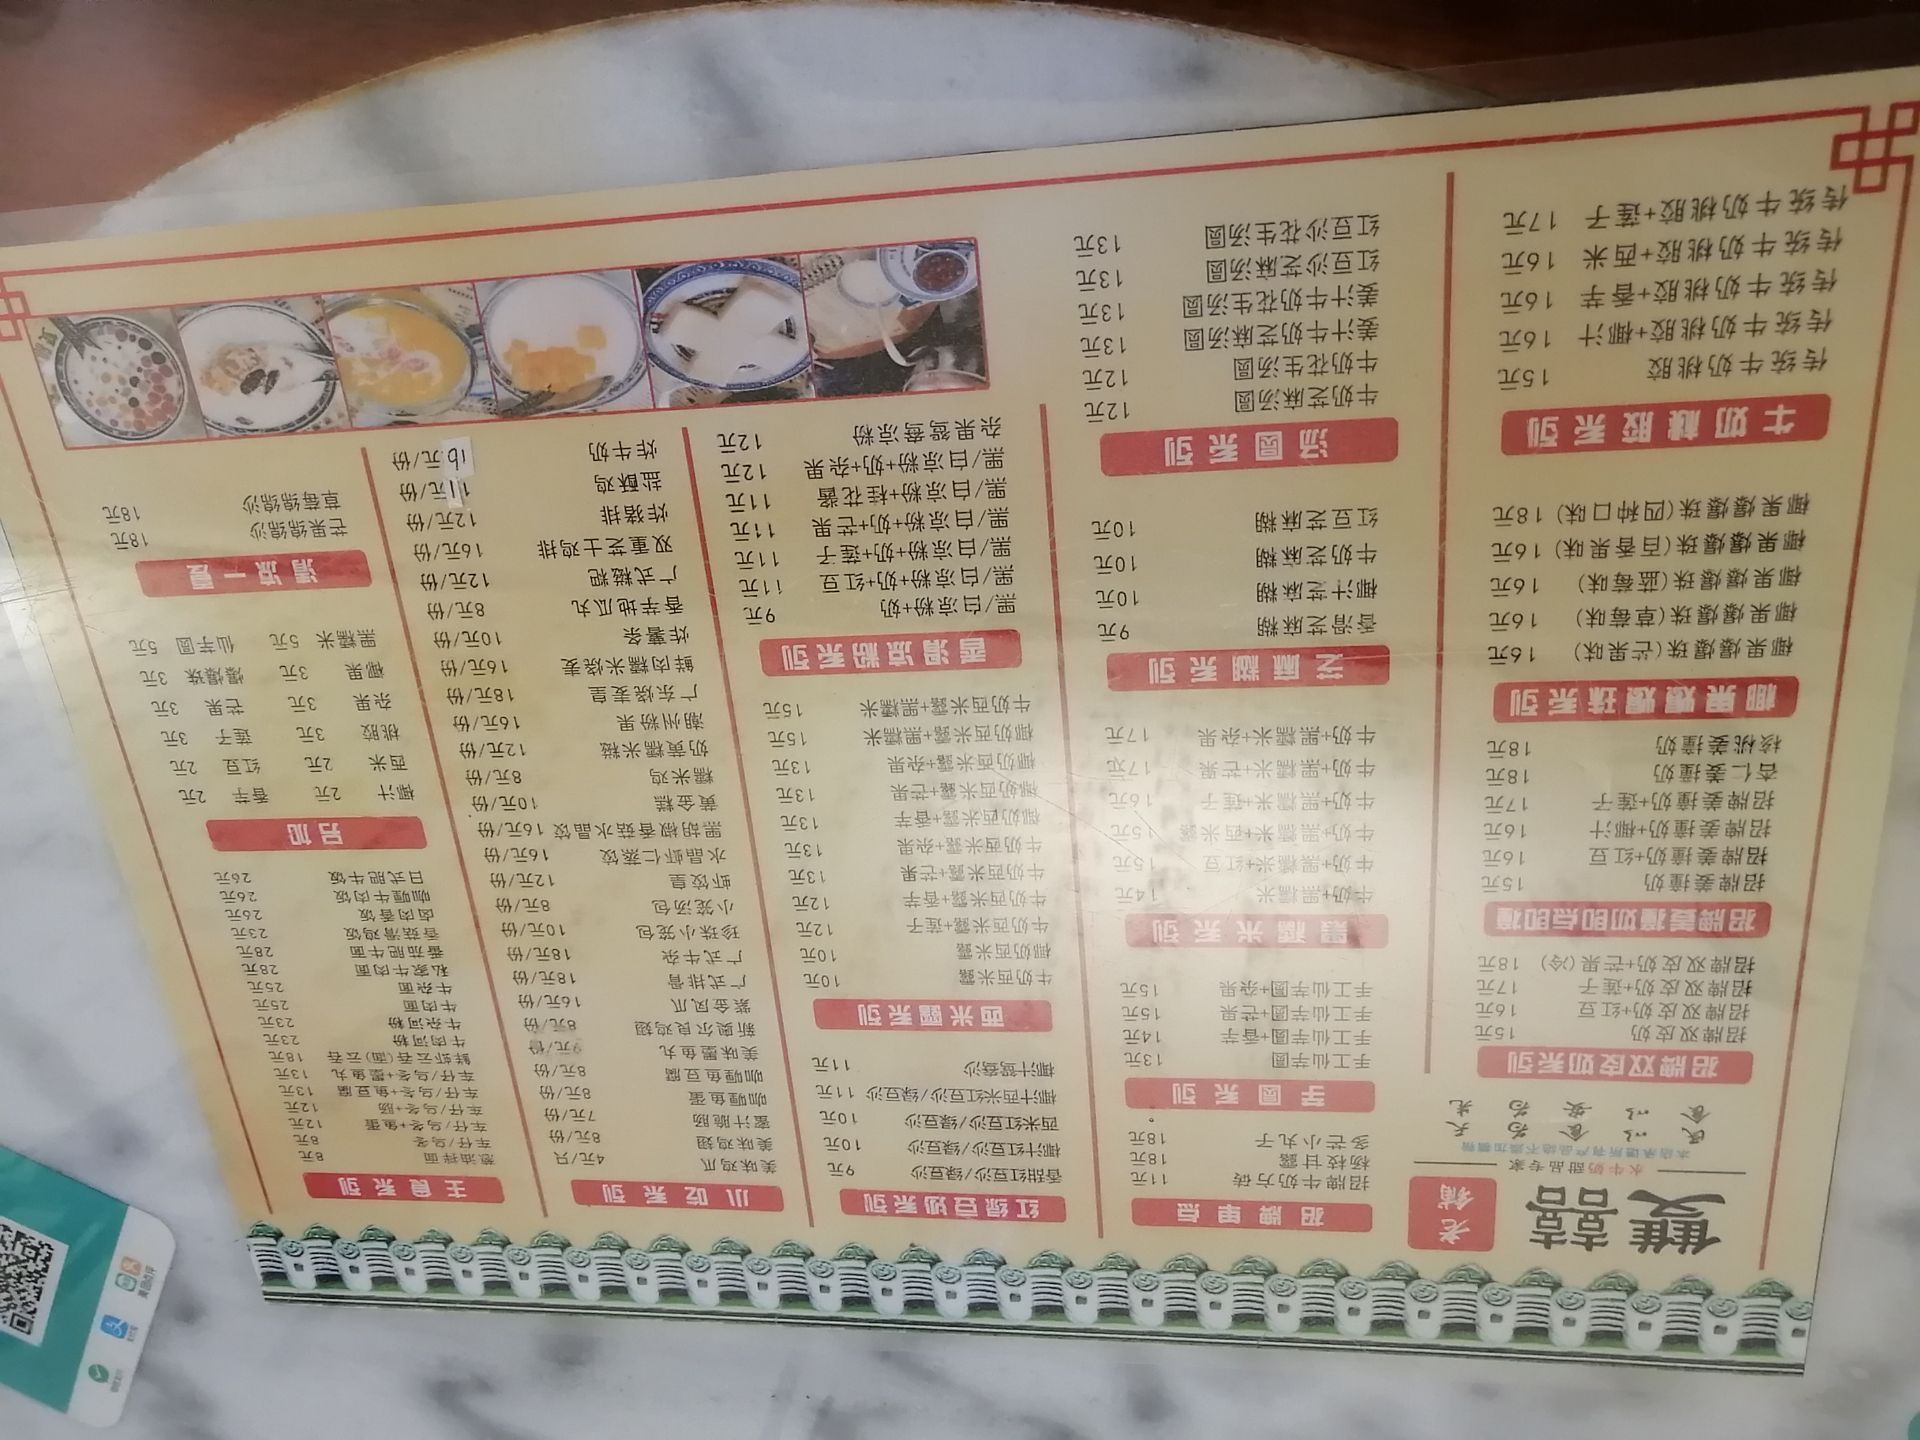 雙囍
老铺
水牛奶甜品专家
本店承诺所有产品绝不添加
民以食为天
食以安为先
招牌双皮奶系列
招牌双皮奶 15元
招牌双皮奶+红豆 16元
招牌双皮奶+莲子 17元
招牌双皮奶+芒果(冷) 18元
招牌姜撞奶即点即撞
招牌姜撞奶 15元
招牌姜撞奶+红豆 16元
招牌姜撞奶+椰汁 16元
招牌姜撞奶+莲子 17元
杏仁姜撞奶 18元
核桃姜撞奶 18元
椰果爆爆珠系列
椰果爆爆珠(芒果味) 16元
椰果爆爆珠(草莓味) 16元
椰果爆爆珠(蓝莓味) 16元
椰果爆爆珠(百香果味) 16元
椰果爆爆珠(四种口味) 18元
牛奶桃胶系列
传统牛奶桃胶 15元
传统牛奶桃胶+椰汁 16元
传统牛奶桃胶+香芋 16元
传统牛奶桃胶+西米 16元
传统牛奶桃胶+莲子 17元
招牌单点
招牌牛奶方砖 11元
杨枝甘露 18元
多芒小丸子 18元
芋圆系列
手工仙芋圆 13元
手工仙芋圆+香芋 14元
手工仙芋圆+芒果 15元
手工仙芋圆+杂果 15元
黑糯米系列
牛奶+黑糯米 14元
牛奶+黑糯米+红豆 15元
牛奶+黑糯米+西米露 15元
牛奶+黑糯米+莲子 16元
牛奶+黑糯米+芒果 17元
牛奶+黑糯米+杂果 17元
芝麻糊系列
香滑芝麻糊 9元
椰汁芝麻糊 10元
牛奶芝麻糊 10元
红豆芝麻糊 10元
汤圆系列
牛奶芝麻汤圆 12元
牛奶花生汤圆 12元
姜汁牛奶芝麻汤圆 13元
姜汁牛奶花生汤圆 13元
红豆沙芝麻汤圆 13元
红豆沙花生汤圆 13元
红绿豆沙系列
香甜红豆沙/绿豆沙 9元
椰汁红豆沙/绿豆沙 10元
西米红豆沙/绿豆沙 10元
椰汁西米红豆沙/绿豆沙 11元
椰汁鸳鸯沙 11元
西米露系列
牛奶西米露 10元
椰奶西米露 10元
牛奶西米露+莲子 12元
牛奶西米露+香芋 12元
牛奶西米露+芒果 13元
牛奶西米露+杂果 13元
椰奶西米露+香芋 13元
椰奶西米露+芒果 13元
椰奶西米露+杂果 13元
椰奶西米露+黑糯米 15元
牛奶西米露+黑糯米 15元
香滑凉粉系列
黑/白凉粉+奶 9元
黑/白凉粉+奶+红豆 11元
黑/白凉粉+奶+莲子 11元
黑/白凉粉+奶+芒果 11元
黑/白凉粉+桂花酱 11元
黑/白凉粉+奶+杂果 12元
杂果鸳鸯凉粉 12元
小吃系列
美味鸡爪 4元/只
美味鸡翅 8元/份
蜜汁脆肠 7元/份
咖喱鱼蛋 8元/份
咖喱鱼豆腐 8元/份
美味墨鱼丸 9元/份
新奥尔良鸡翅 8元/份
紫金凤爪 16元/份
广式排骨 18元/份
广式牛杂 18元/份
珍珠小笼包 10元/份
小笼汤包 8元/份
虾饺皇 12元/份
水晶虾仁蒸饺 16元/份
黑胡椒香菇水晶饺 16元/份
黄金糕 10元/份
糯米鸡 8元/份
奶黄糯米糍 12元/份
潮州粉果 16元/份
广东烧麦皇 18元/份
鲜肉糯米烧麦 16元/份
炸薯条 10元/份
香芋地瓜丸 8元/份
广式糍粑 12元/份
双重芝士鸡排 16元/份
炸猪排 12元/份
盐酥鸡 11元/份
炸牛奶 10元/份
主食系列
葱油拌面 8元
车仔/乌冬 8元
车仔/乌冬+鱼蛋 12元
车仔/乌冬+肠 12元
车仔/乌冬+鱼豆腐 13元
车仔/乌冬+墨鱼丸 13元
鲜虾云吞(面)云吞 18元
牛肉河粉 23元
牛杂河粉 23元
牛肉面 25元
牛杂面 25元
私家牛肉面 28元
番茄肥牛面 28元
香菇滑鸡饭 23元
卤肉香饭 26元
咖喱牛肉饭 26元
日式肥牛饭 26元
另加
椰汁 2元 香芋 2元
西米 2元 红豆 2元
桃胶 3元 莲子 3元
杂果 3元 芒果 3元
椰果 3元 爆爆珠 3元
黑糯米 5元 仙芋圆 5元
清凉一夏
芒果绵绵沙 18元
草莓绵绵沙 18元